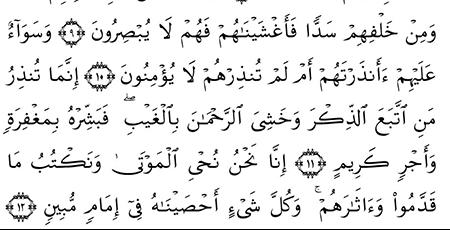 وَمِنْ خَلْفِهِمْ سَدًّا فَأَغْشَيْنَـٰهُمْ فَهُمْ لَا يُبْصِرُونَ ﴿٩﴾ وَسَوَآءٌ
عَلَيْهِمْ ءَأَنذَرْتَهُمْ أَمْ لَمْ تُنذِرْهُمْ لَا يُؤْمِنُونَ ﴿١٠﴾ إِنَّمَا تُنذِرُ
مَنِ ٱتَّبَعَ ٱلذِّكْرَ وَخَشِىَ ٱلرَّحْمَـٰنَ بِٱلْغَيْبِ ۖ فَبَشِّرْهُ بِمَغْفِرَةٍ
وَأَجْرٍ كَرِيمٍ ﴿١١﴾ إِنَّا نَحْنُ نُحْىِ ٱلْمَوْتَىٰ وَنَكْتُبُ مَا
قَدَّمُوا۟ وَءَاثَـٰرَهُمْ ۚ وَكُلَّ شَىْءٍ أَحْصَيْنَـٰهُ فِىٓ إِمَامٍ مُّبِينٍ ﴿١٢﴾